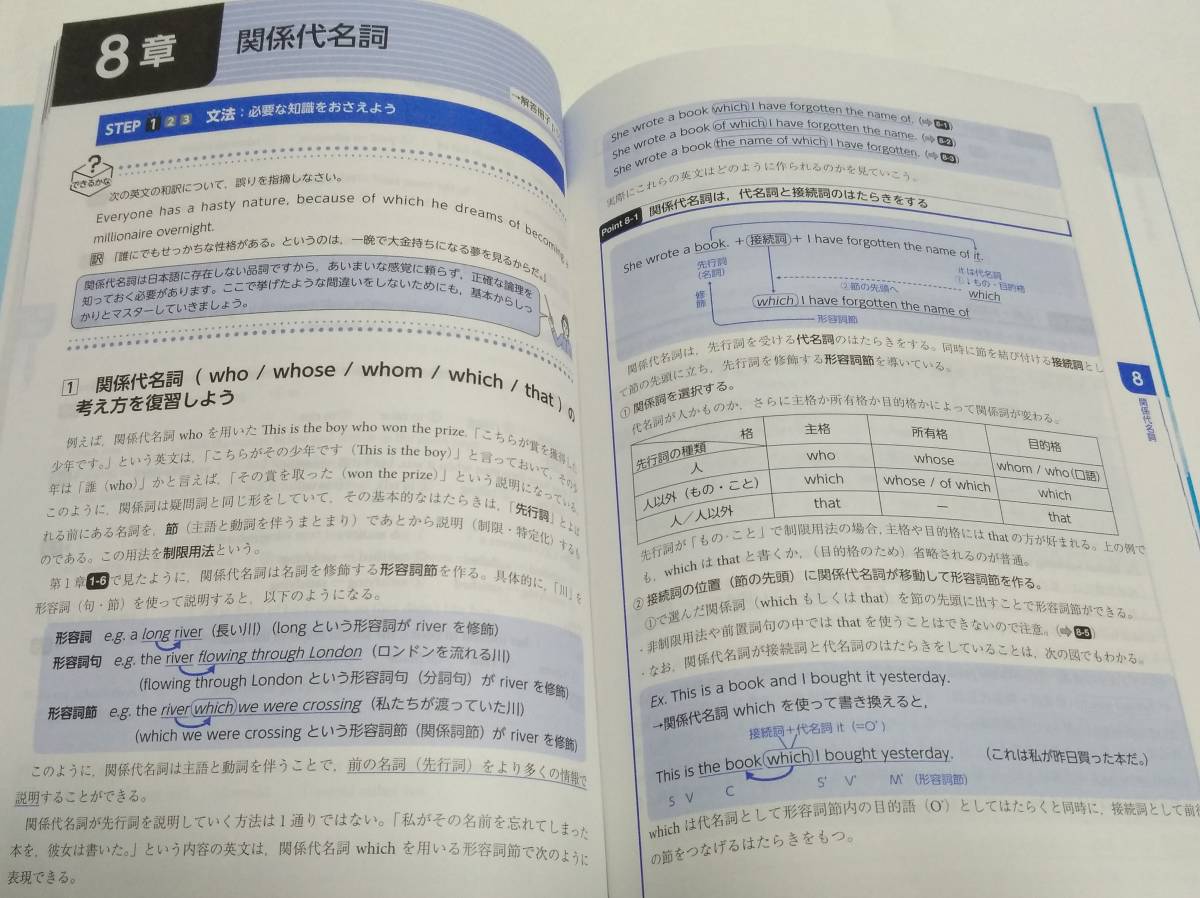 8章
関係代名詞
→解答冊子
STEP 1 2 3 文法:必要な知識をおさえよう
?
できるかな
次の英文の和訳について,誤りを指摘しなさい。
Everyone has a hasty nature, because of which he dreams of becoming a
millionaire overnight.
訳「誰にでもせっかちな性格がある。というのは,一晩で大金持ちになる夢を見るからだ。」
関係代名詞は日本語に存在しない品詞ですから,あいまいな感覚に頼らず,正確な論理を
知っておく必要があります。ここで挙げたような間違いをしないためにも,基本からしっ
かりとマスターしていきましょう。
1 関係代名詞(who / whose / whom / which / that)の
考え方を復習しよう
例えば,関係代名詞 who を用いた This is the boy who won the prize.「こちらが賞を獲得した
少年です。」という英文は,「こちらがその少年です(This is the boy)」と言っておいて,その少
年は「誰(who)」かと言えば,「その賞を取った(won the prize)」という説明になっている。
このように,関係詞は疑問詞と同じ形をしていて,その基本的なはたらきは,「先行詞」とよば
れる前にある名詞を,節(主語と動詞を伴うまとまり)であとから説明(制限・特定化)するも
のである。この用法を制限用法という。
第1章1-6で見たように,関係代名詞は名詞を修飾する形容詞節を作る。具体的に,「川」を
形容詞(句・節)を使って説明すると,以下のようになる。
形容詞 e.g. a long river(長い川)(long という形容詞が river を修飾)
形容詞句 e.g. the river flowing through London(ロンドンを流れる川)
(flowing through London という形容詞句(分詞句)が river を修飾)
形容詞節 e.g. the river which we were crossing(私たちが渡っていた川)
(which we were crossing という形容詞節(関係詞節)が river を修飾)
このように,関係代名詞は主語と動詞を伴うことで,前の名詞(先行詞)をより多くの情報で
説明することができる。
関係代名詞が先行詞を説明していく方法は1通りではない。「私がその名前を忘れてしまった
本を,彼女は書いた。」という内容の英文は,関係代名詞 which を用いる形容詞節で次のように
表現できる。
She wrote a book which I have forgotten the name of. (⇒8-1)
She wrote a book of which I have forgotten the name. (⇒8-2)
She wrote a book the name of which I have forgotten. (⇒8-3)
実際にこれらの英文はどのように作られるのかを見ていこう。
Point 8-1 関係代名詞は,代名詞と接続詞のはたらきをする
She wrote a book. + 接続詞 + I have forgotten the name of it.
先行詞
(名詞)
it は代名詞
①↓もの・目的格
②節の先頭へ
which
修飾
which I have forgotten the name of
形容詞節
関係代名詞は,先行詞を受ける代名詞のはたらきをする。同時に節を結び付ける接続詞とし
て節の先頭に立ち,先行詞を修飾する形容詞節を導いている。
① 関係詞を選択する。
代名詞が人かものか,さらに主格か所有格か目的格かによって関係詞が変わる。
先行詞の種類 格 主格 所有格 目的格
人 who whose whom / who(口語)
人以外(もの・こと) which whose / of which which
人/人以外 that — that
先行詞が「もの・こと」で制限用法の場合,主格や目的格には that の方が好まれる。上の例で
も,which は that と書くか,(目的格のため)省略されるのが普通。
② 接続詞の位置(節の先頭)に関係代名詞が移動して形容詞節を作る。
①で選んだ関係詞(which もしくは that)を節の先頭に出すことで形容詞節ができる。
・非制限用法や前置詞句の中では that を使うことはできないので注意。(⇒8-5)
・なお,関係代名詞が接続詞と代名詞のはたらきをしていることは,次の図でもわかる。
Ex. This is a book and I bought it yesterday.
→関係代名詞 which を使って書き換えると,
接続詞+代名詞 it(=O')
This is the book which I bought yesterday. (これは私が昨日買った本だ。)
S V C S' V' M'(形容詞節)
which は代名詞として形容詞節内の目的語(O')としてはたらくと同時に,接続詞として前後
の節をつなげるはたらきをもつ。
8
関係代名詞